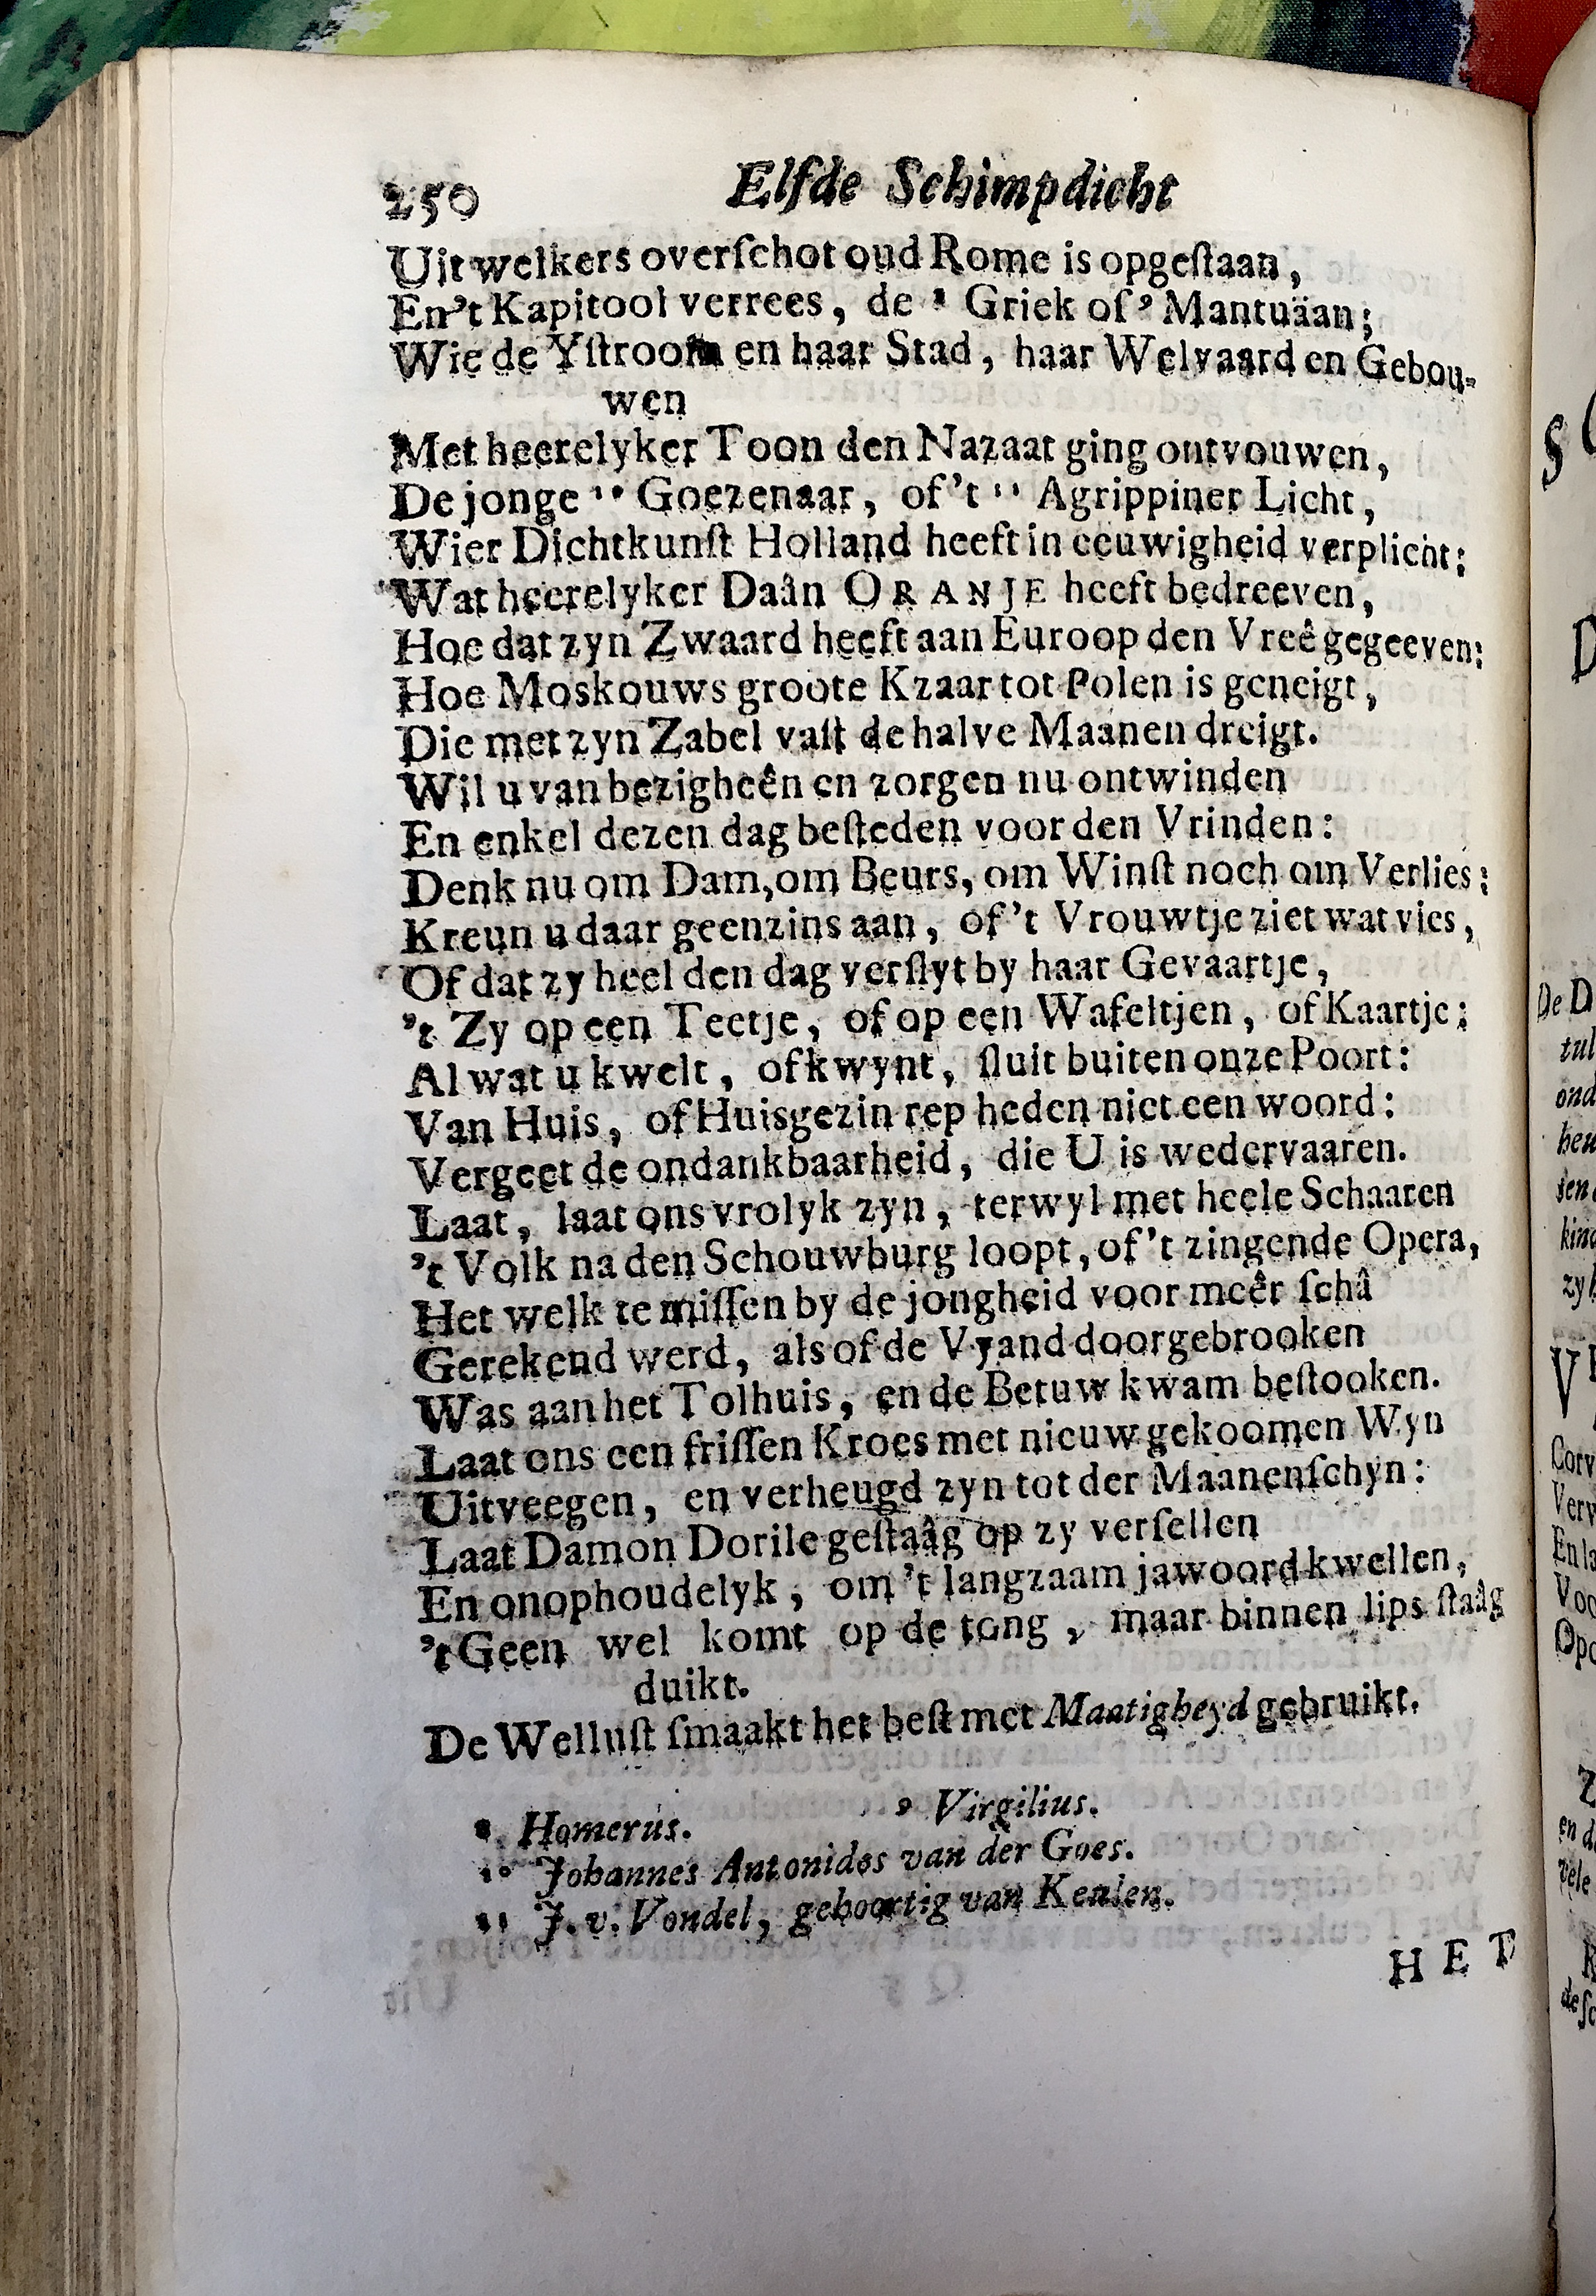 250 Elfde Schimpdicht
Uit welkers overſchot oud Rome is opgeſtaan,
En 't Kapitool verrees, de ⁸ Griek of ⁹ Mantuäan;
Wie de Yſtroom en haar Stad, haar Welvaard en Gebou-
wen
Met heerelyker Toon den Nazaat ging ontvouwen,
De jonge ¹⁰ Goezenaar, of 't ¹¹ Agrippiner Licht,
Wier Dichtkunſt Holland heeft in eeuwigheid verplicht:
Wat heerelyker Daân ORANJE heeft bedreeven,
Hoe dat zyn Zwaard heeft aan Euroop den Vreê gegeeven:
Hoe Moskouws groote Kzaar tot Polen is geneigt,
Die met zyn Zabel vaſt de halve Maanen dreigt.
Wil u van bezigheên en zorgen nu ontwinden
En enkel dezen dag beſteden voor den Vrinden:
Denk nu om Dam, om Beurs, om Winſt noch om Verlies:
Kreun u daar geenzins aan, of 't Vrouwtje ziet wat vies,
Of dat zy heel den dag verſlyt by haar Gevaartje,
't Zy op een Teetje, of op een Wafeltjen, of Kaartje;
Al wat u kwelt, of kwynt, ſluit buiten onze Poort:
Van Huis, of Huisgezin rep heden niet een woord:
Vergeet de ondankbaarheid, die U is wedervaaren.
Laat, laat ons vrolyk zyn, terwyl met heele Schaaren
't Volk na den Schouwburg loopt, of 't zingende Opera,
Het welk te miſſen by de jongheid voor meêr ſchâ
Gerekend werd, als of de Vyand doorgebrooken
Was aan het Tolhuis, en de Betuw kwam beſtooken.
Laat ons een friſſen Kroes met nieuw gekoomen Wyn
Uitveegen, en verheugd zyn tot der Maanenſchyn:
Laat Damon Dorile geſtaâg op zy verſellen
En onophoudelyk, om 't langzaam jawoord kwellen,
't Geen wel komt op de tong, maar binnen lips ſtaâg
duikt.
De Wellust ſmaakt het beſt met Maatigheyd gebruikt.
⁸ Homerus. ⁹ Virgilius.
¹⁰ Johannes Antonides van der Goes.
¹¹ J. v. Vondel, geboortig van Keulen.
HET